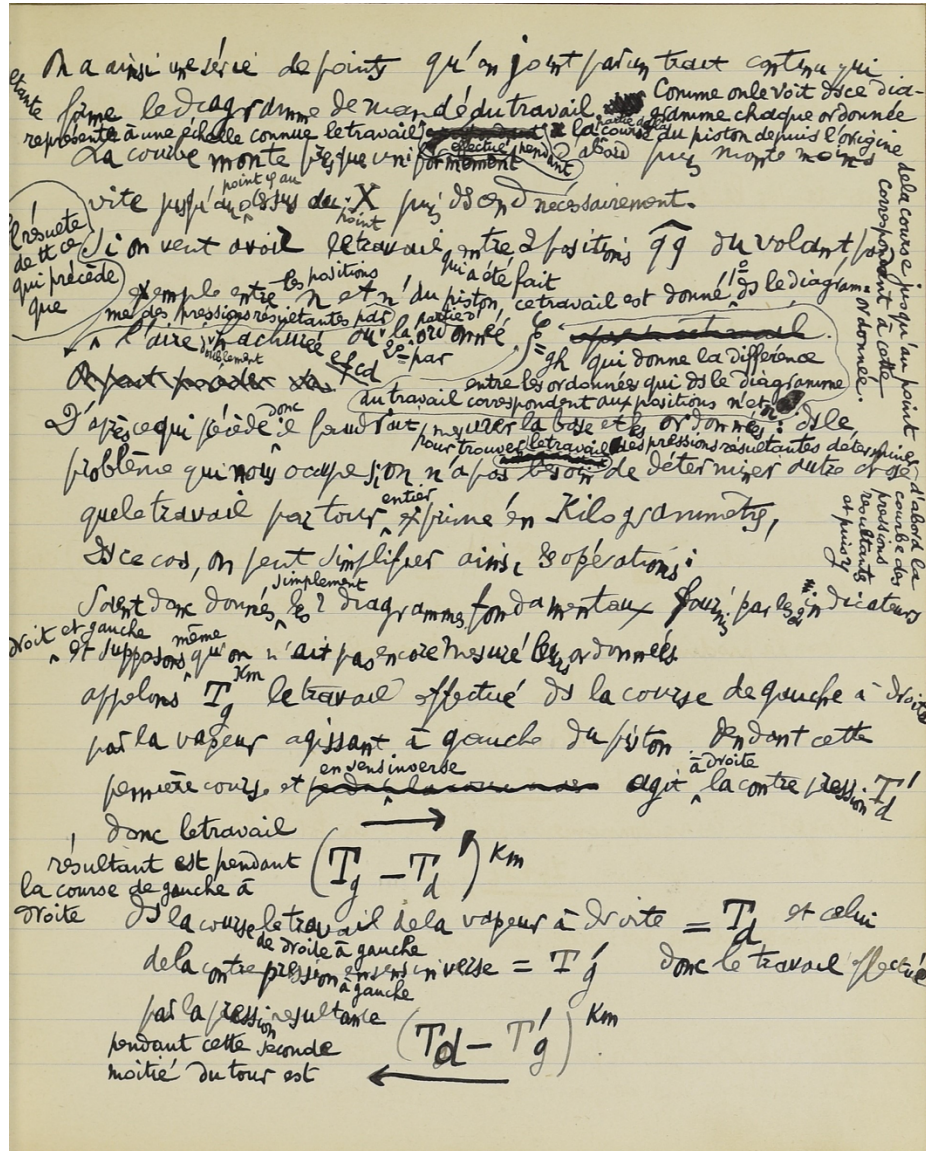 On a ainsi une série de points qu'on joint par un trait continu qui
forme le diagramme demandé du travail Comme on le voit ds ce dia-
gramme chaque ordonnée
représente à une échelle connue le travail effectué pendant la partie de la course du piston depuis l'origine
de la course jusqu'au point
correspondant à cette
ordonnée.
La courbe monte presque uniformément d'abord puis monte moins
vite jusqu'au point q au dessus du point X puis descend nécessairement.
Il résulte
de tt ce
qui précède
que
Si on veut avoir le travail qui a été fait entre 2 positions qq du volant, par
exemple entre les positions n et n' du piston, ce travail est donné 1º ds le diagram-
me des pressions résultantes par
l'aire hachurée ou 2º par la partie d'ordonnée
efcd
= gh qui donne la différence
entre les ordonnées qui ds le diagramme
du travail correspondent aux positions n et n'
D'après ce qui précède donc il faudrait mesurer la base et les ordonnées: ds le
pour trouver le travail des pressions résultantes déterminer
d'abord la
courbe des
pressions
résultantes
et puis
problème qui nous occupe si on n'a pas besoin de déterminer autre chose
que le travail par tour entier exprimé en Kilogrammètre,
ds ce cas, on peut simplifier ainsi les opérations:
Soient donc donnés simplement les 2 diagrammes fondamentaux fournis par les indicateurs
droit et gauche
et supposons même qu'on n'ait pas encore mesuré leurs ordonnées
appelons Tg Km le travail effectué ds la course de gauche à droite
par la vapeur agissant à gauche du piston. Pendant cette
première course et en sens inverse agit à droite la contre pression T'd
donc le travail
résultant est pendant
la course de gauche à
droite
(Tg – T'd) Km
ds la course de droite à gauche le travail de la vapeur à droite = Td et celui
de la contre pression en sens inverse à gauche = T'g donc le travail effectué
par la pression résultante
pendant cette seconde
moitié du tour est
(Td – T'g) Km